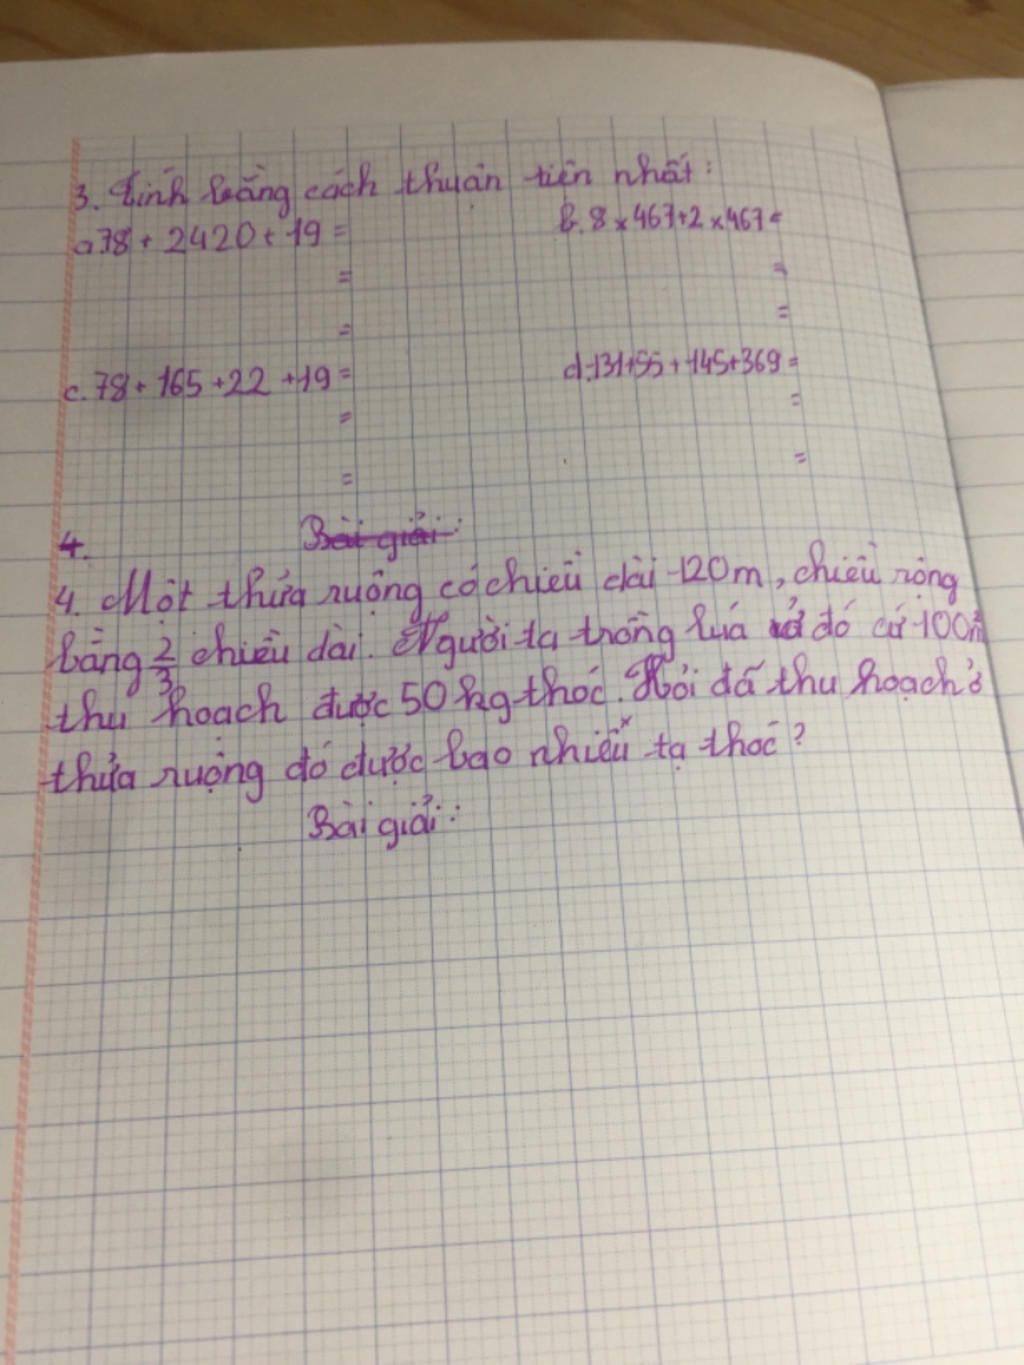 3. Tính bằng cách thuận tiện nhất:
a. 78 + 2420 + 19 =
b. 8 x 467 + 2 x 467 =
= =
= =
c. 78 + 165 + 22 + 19 =
d. 131 + 55 + 145 + 369 =
= =
= =
4. Bài giải:
4. Một thửa ruộng có chiều dài 120m, chiều rộng
bằng 2/3 chiều dài. Người ta trồng lúa ở đó cứ 100m
thu hoạch được 50kg thóc. Hỏi đã thu hoạch ở
thửa ruộng đó được bao nhiêu tạ thóc?
Bài giải: